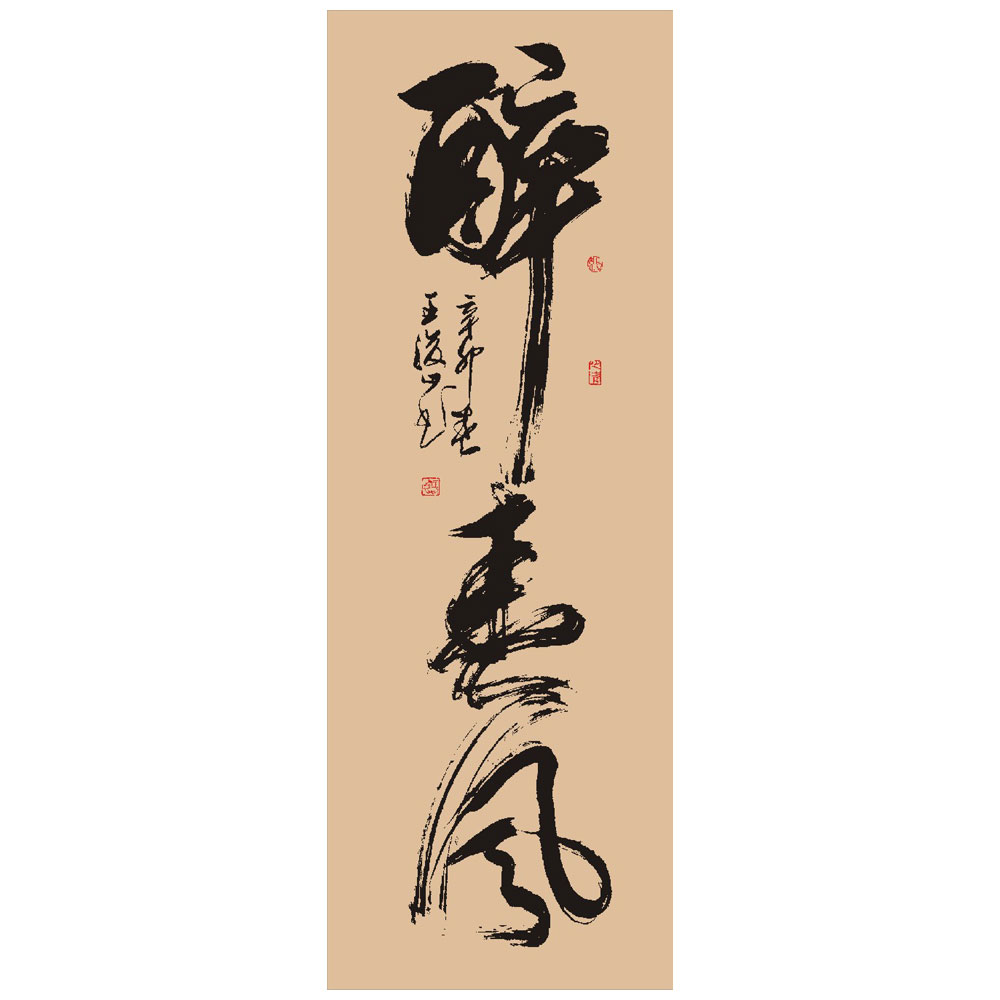 醉春风
辛卯春
王俊山书